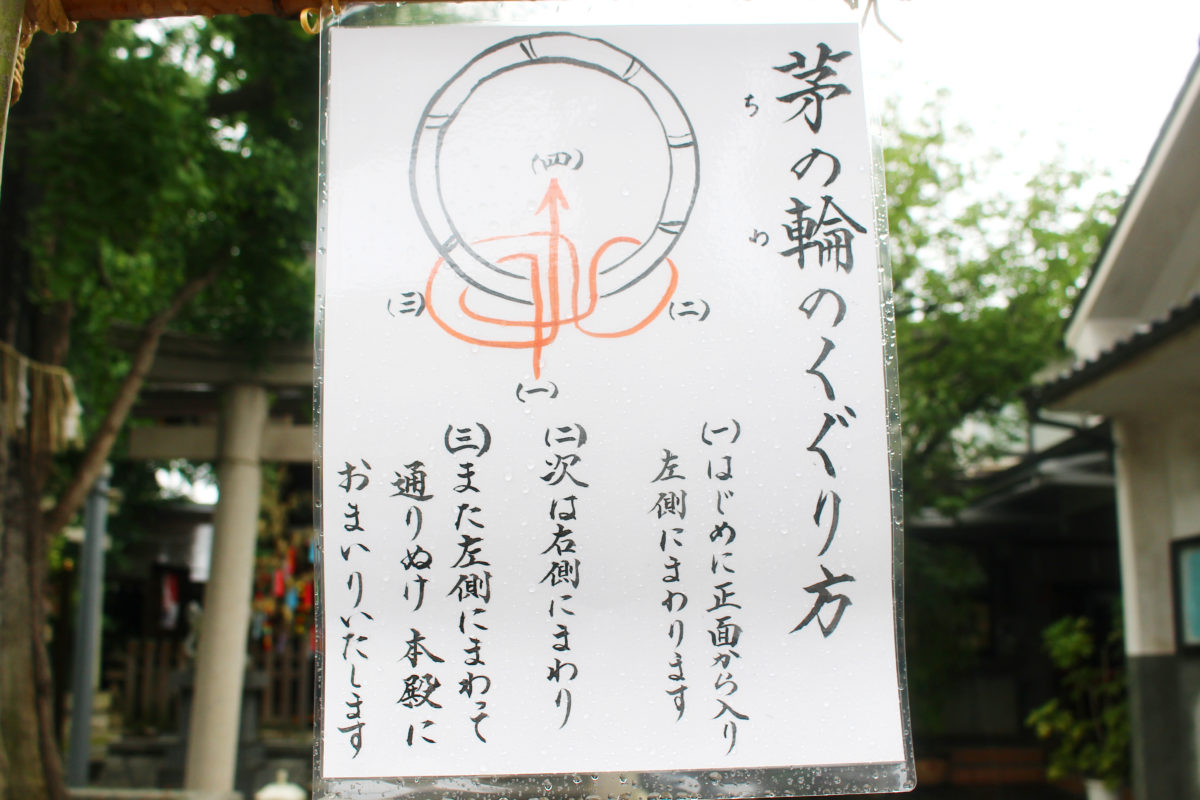 茅の輪のくぐり方
ち
わ
(一)はじめに正面から入り
左側にまわります
(二)次は右側にまわり
(三)また左側にまわって
通りぬけ 本殿に
おまいりいたします
(四)
(三)
(二)
(一)